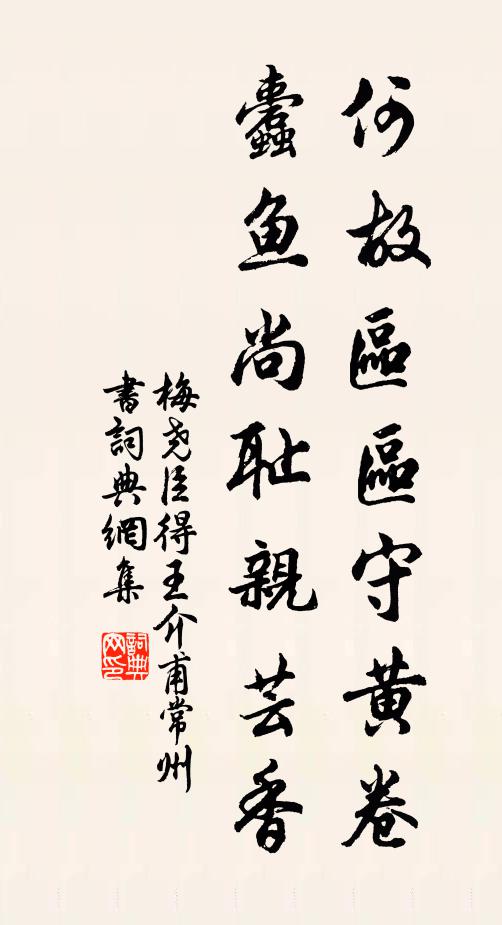 何故區區守黃卷
蠹魚尚耻親芸香
梅堯臣得王介甫常州
書詞典網集
詞典
网印